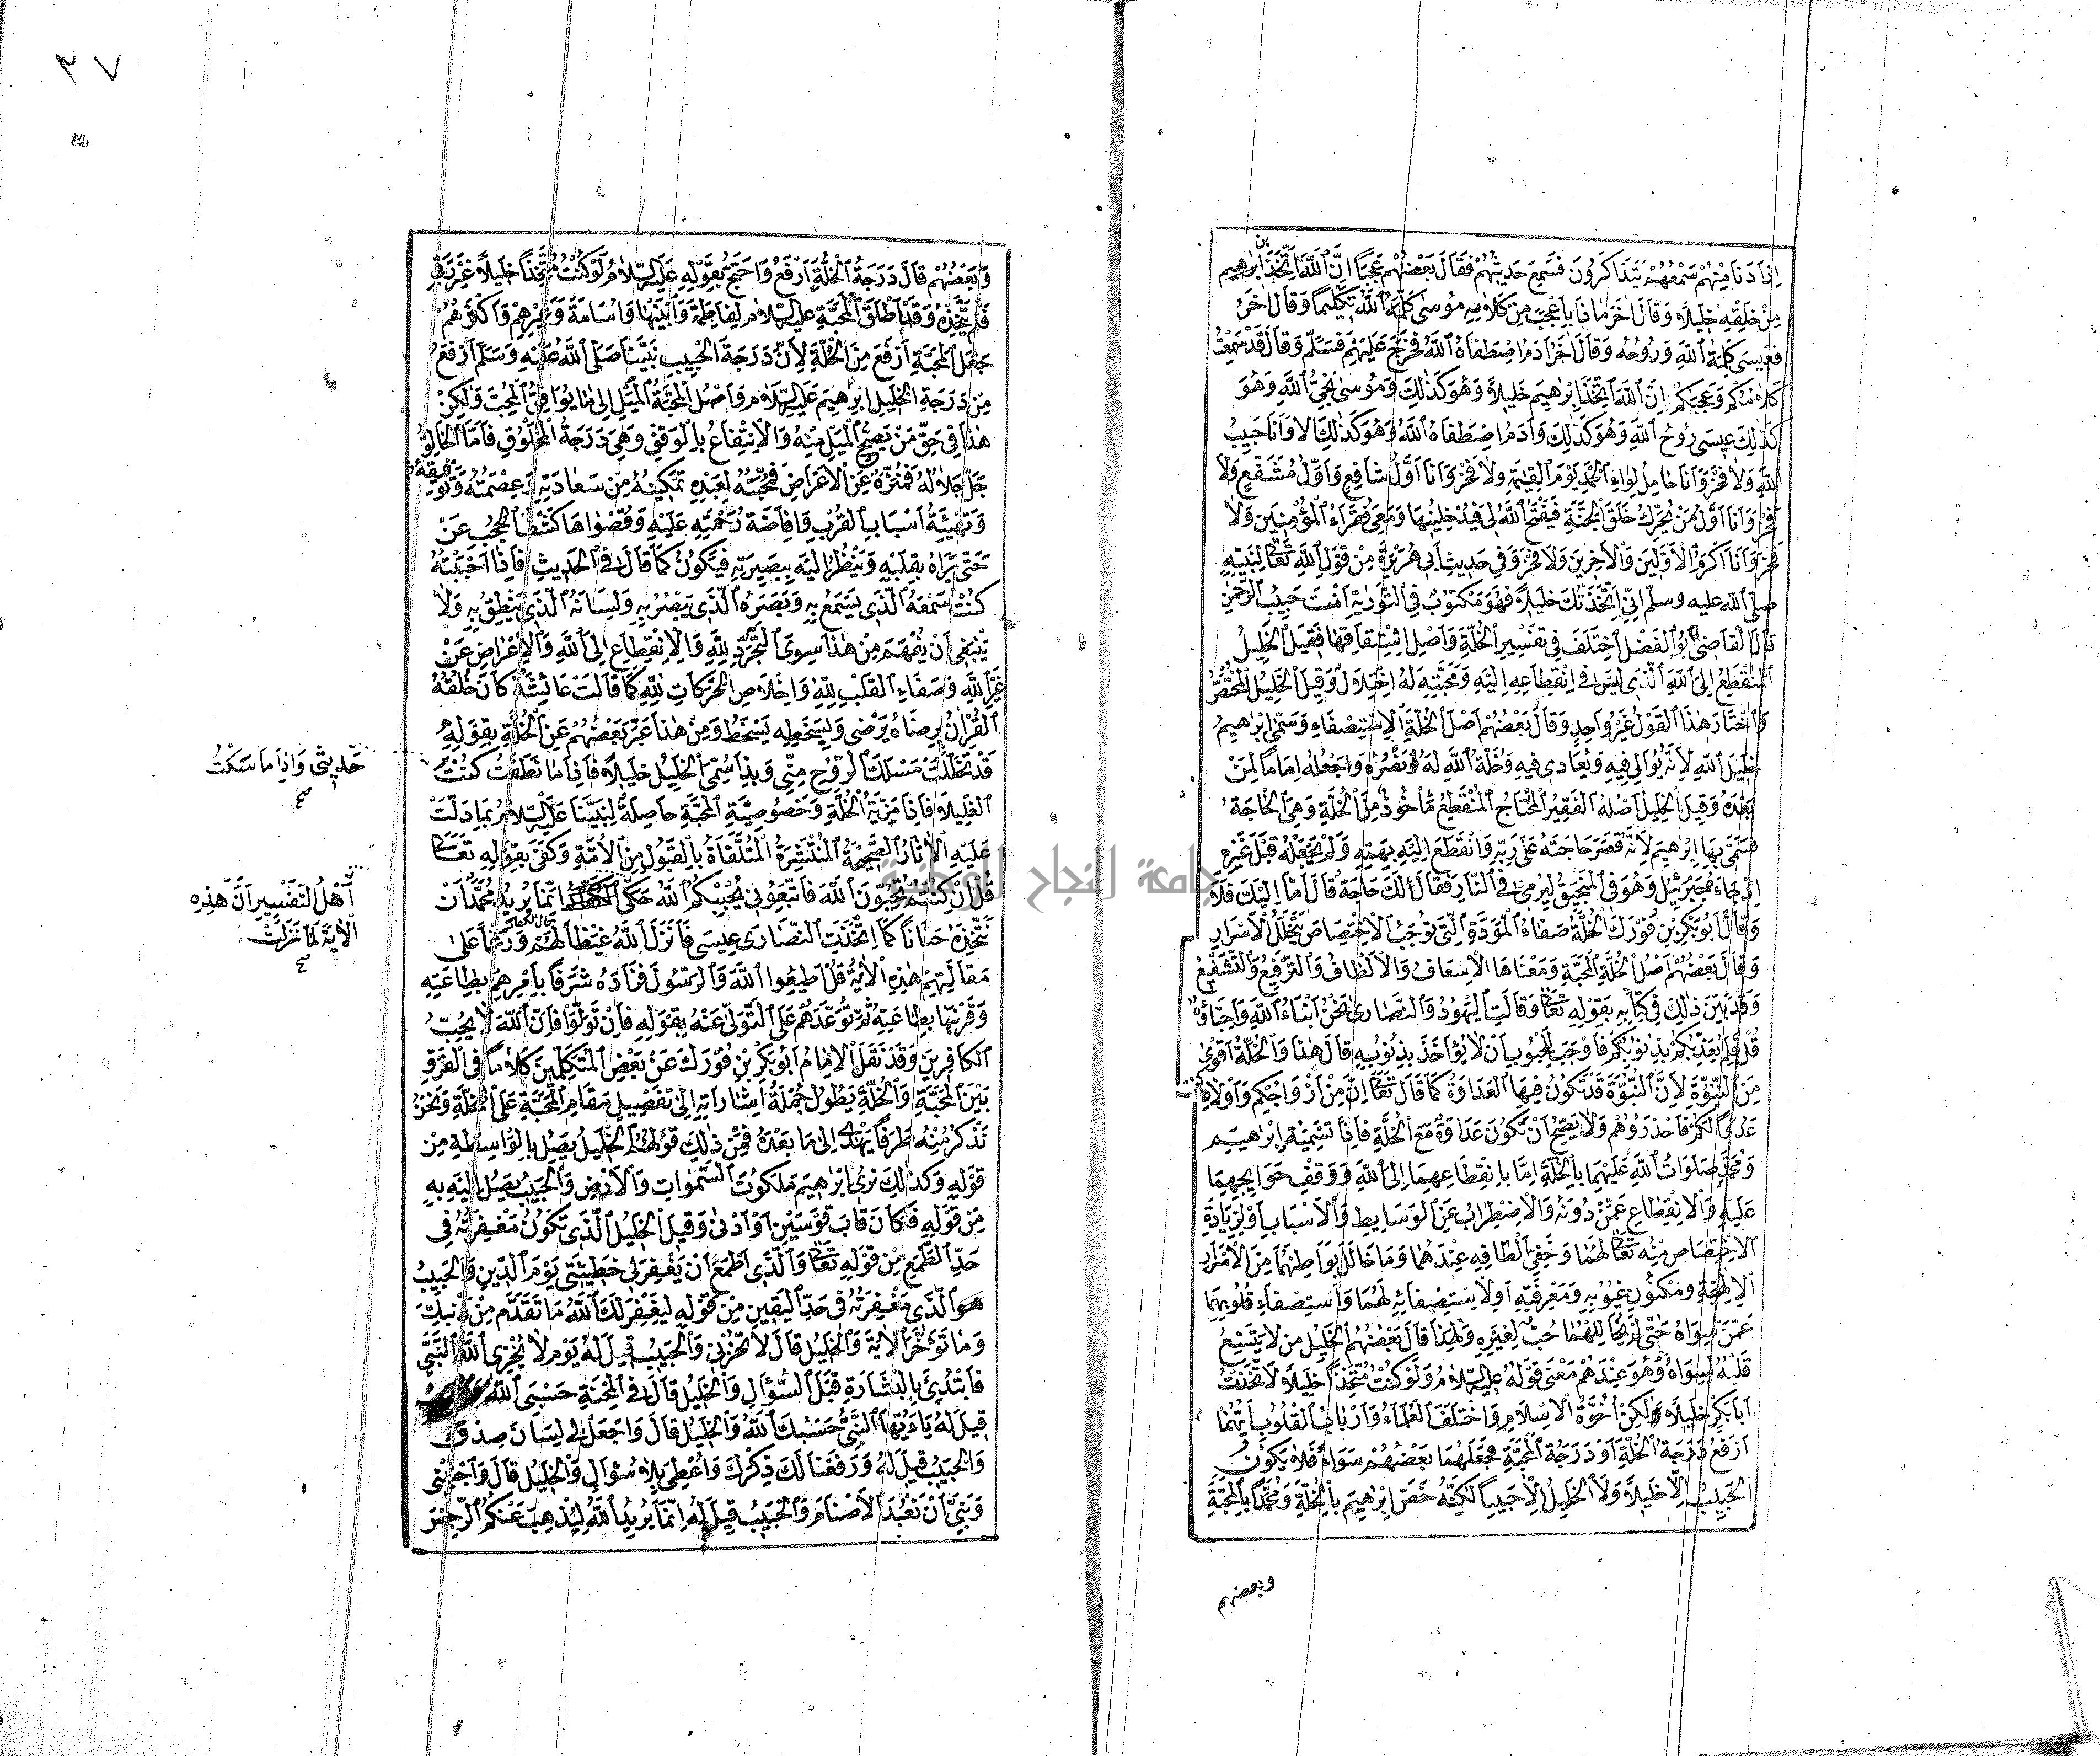 اِذَا دَنَا مِنْهُمْ سَمِعَهُمْ يَتَذَاكَرُونَ فَسَمِعَ حَدِيثَهُمْ فَقَالَ بَعْضُهُمْ عَجَبًا اِنَّ اللّٰهَ اتَّخَذَ اِبْرٰهِيم
مِنْ خَلْقِهِ خَلِيلًا وَقَالَ اٰخَرُ مَاذَا بِاَعْجَبَ مِنْ كَلَامِهِ مُوسٰى كَلَّمَهُ اللّٰهُ تَكْلِيمًا وَقَالَ اٰخَرُ
فَعِيسٰى كَلِمَةُ اللّٰهِ وَرُوحُهُ وَقَالَ اٰخَرُ اٰدَمُ اصْطَفَاهُ اللّٰهُ فَخَرَجَ عَلَيْهِمْ فَسَلَّمَ وَقَالَ قَدْ سَمِعْتُ
كَلَامَكُمْ وَعَجَبَكُمْ اِنَّ اللّٰهَ اتَّخَذَ اِبْرٰهِيمَ خَلِيلًا وَهُوَ كَذٰلِكَ وَمُوسٰى نَجِيُّ اللّٰهِ وَهُوَ
كَذٰلِكَ عِيسٰى رُوحُ اللّٰهِ وَهُوَ كَذٰلِكَ وَاٰدَمُ اصْطَفَاهُ اللّٰهُ وَهُوَ كَذٰلِكَ اَلَا وَاَنَا حَبِيبُ
اللّٰهِ وَلَا فَخْرَ وَاَنَا حَامِلُ لِوَاءِ الْحَمْدِ يَوْمَ الْقِيٰمَةِ وَلَا فَخْرَ وَاَنَا اَوَّلُ شَافِعٍ وَاَوَّلُ مُشَفَّعٍ وَلَا
فَخْرَ وَاَنَا اَوَّلُ مَنْ يُحَرِّكُ حَلَقَ الْجَنَّةِ فَيَفْتَحُ اللّٰهُ لِي فَيُدْخِلُنِيهَا وَمَعِي فُقَرَاءُ الْمُؤْمِنِينَ وَلَا
فَخْرَ وَاَنَا اَكْرَمُ الْاَوَّلِينَ وَالْاٰخِرِينَ وَلَا فَخْرَ وَفِي حَدِيثِ اَبِي هُرَيْرَةَ مِنْ قَوْلِ اللّٰهِ تَعَالٰى لِنَبِيِّهِ
صلى الله عليه وسلم اِنِّي اتَّخَذْتُكَ خَلِيلًا فَهُوَ مَكْتُوبٌ فِي التَّوْرٰيةِ اَنْتَ حَبِيبُ الرَّحْمٰنِ
قَالَ الْقَاضِي اَبُو الْفَضْلِ اخْتُلِفَ فِي تَفْسِيرِ الْخُلَّةِ وَاَصْلِ اشْتِقَاقِهَا فَقِيلَ الْخَلِيلُ
الْمُنْقَطِعُ اِلَى اللّٰهِ الَّذِي لَيْسَ فِي انْقِطَاعِهِ اِلَيْهِ وَمَحَبَّتِهِ لَهُ اخْتِلَالٌ وَقِيلَ الْخَلِيلُ الْمُخْتَصُّ
وَاخْتَارَ هٰذَا الْقَوْلَ غَيْرُ وَاحِدٍ وَقَالَ بَعْضُهُمْ اَصْلُ الْخُلَّةِ الْاِسْتِصْفَاءِ وَسُمِّيَ اِبْرٰهِيمُ
خَلِيلَ اللّٰهِ لِاَنَّهُ يُوَالِي فِيهِ وَيُعَادِي فِيهِ وَخُلَّةُ اللّٰهِ لَهُ نَصْرُهُ وَجَعْلُهُ اِمَامًا لِمَنْ
بَعْدَهُ وَقِيلَ الْخَلِيلُ اَصْلُهُ الْفَقِيرُ الْمُحْتَاجُ الْمُنْقَطِعُ مَأْخُوذٌ مِنَ الْخَلَّةِ وَهِيَ الْحَاجَةُ
فَسُمِّيَ بِهَا اِبْرٰهِيمُ لِاَنَّهُ قَصَرَ حَاجَتَهُ عَلٰى رَبِّهِ وَانْقَطَعَ اِلَيْهِ بِهَمِّهِ وَلَمْ يَجْعَلْهُ قِبَلَ غَيْرِهِ
اِذْ جَاءَهُ جَبْرَئِيلُ وَهُوَ فِي الْمَنْجَنِيقِ لِيُرْمٰى فِي النَّارِ فَقَالَ اَلَكَ حَاجَةٌ قَالَ اَمَّا اِلَيْكَ فَلَا
وَقَالَ اَبُو بَكْرِ بْنُ فُورَكَ الْخُلَّةُ صَفَاءُ الْمَوَدَّةِ الَّتِي تُوجِبُ الْاِخْتِصَاصَ بِتَخَلُّلِ الْاَسْرَارِ
وَقَالَ بَعْضُهُمْ اَصْلُ الْخُلَّةِ الْمَحَبَّةُ وَمَعْنَاهَا الْاِسْعَافُ وَالْاَلْطَافُ وَالتَّرْفِيعُ وَالتَّشْفِيعُ
وَقَدْ بَيَّنَ ذٰلِكَ فِي كِتَابِهِ بِقَوْلِهِ تَعَالٰى وَقَالَتِ الْيَهُودُ وَالنَّصَارٰى نَحْنُ اَبْنَاءُ اللّٰهِ وَاَحِبَّاؤُهُ
قُلْ فَلِمَ يُعَذِّبُكُمْ بِذُنُوبِكُمْ فَاَوْجَبَ لِلْمَحْبُوبِ اَنْ لَا يُؤَاخَذَ بِذُنُوبِهِ قَالَ هٰذَا وَالْخُلَّةُ اَقْوٰى
مِنَ الْبُنُوَّةِ لِاَنَّ الْبُنُوَّةَ قَدْ تَكُونُ فِيهَا الْعَدَاوَةُ كَمَا قَالَ تَعَالٰى اِنَّ مِنْ اَزْوَاجِكُمْ وَاَوْلَادِكُمْ
عَدُوًّا لَكُمْ فَاحْذَرُوهُمْ وَلَا يَصِحُّ اَنْ تَكُونَ عَدَاوَةٌ مَعَ الْخُلَّةِ فَاِذًا تَسْمِيَةُ اِبْرٰهِيمَ
وَمُحَمَّدٍ صَلَوَاتُ اللّٰهِ عَلَيْهِمَا بِالْخُلَّةِ اِمَّا بِانْقِطَاعِهِمَا اِلَى اللّٰهِ وَوَقْفِ حَوَايِجِهِمَا
عَلَيْهِ وَالْاِنْقِطَاعِ عَمَّنْ دُونَهُ وَالْاِضْطِرَابِ عَنِ الْوَسَايِطِ وَالْاَسْبَابِ اَوْ لِزِيَادَةِ
الْاِخْتِصَاصِ مِنْهُ تَعَالٰى لَهُمَا وَخَفِيِّ اَلْطَافِهِ عِنْدَهُمَا وَمَا خَالَلَ بَوَاطِنَهُمَا مِنَ الْاَسْرَارِ
الْاِلٰهِيَّةِ وَمَكْنُونِ غُيُوبِهِ وَمَعْرِفَتِهِ اَوْ لِاسْتِصْفَائِهِ لَهُمَا وَاسْتِصْفَاءِ قُلُوبِهِمَا
عَمَّنْ سِوَاهُ حَتّٰى لَمْ يُخَالِلْهُمَا حُبٌّ لِغَيْرِهِ وَلِهٰذَا قَالَ بَعْضُهُمُ الْخَلِيلُ مَنْ لَا يَتَّسِعُ
قَلْبُهُ لِسِوَاهُ وَهُوَ عِنْدَهُمْ مَعْنٰى قَوْلِهِ عليه السّلامُ وَلَوْ كُنْتُ مُتَّخِذًا خَلِيلًا لَاتَّخَذْتُ
اَبَا بَكْرٍ خَلِيلًا لٰكِنْ اُخُوَّةُ الْاِسْلَامِ وَاخْتَلَفَ الْعُلَمَاءُ وَاَرْبَابُ الْقُلُوبِ اَيُّهُمَا
اَرْفَعُ دَرَجَةُ الْخُلَّةِ اَوْ دَرَجَةُ الْمَحَبَّةِ فَجَعَلَهُمَا بَعْضُهُمْ سَوَاءً فَلَا يَكُونُ
الْحَبِيبُ اِلَّا خَلِيلًا وَلَا الْخَلِيلُ اِلَّا حَبِيبًا لٰكِنَّهُ خَصَّ اِبْرٰهِيمَ بِالْخُلَّةِ وَمُحَمَّدًا بِالْمَحَبَّةِ
وبعضهم
٢٧
وَبَعْضُهُمْ قَالَ دَرَجَةُ الْخُلَّةِ اَرْفَعُ وَاحْتَجَّ بِقَوْلِهِ عَلَيْهِ السَّلَامُ لَوْ كُنْتُ مُتَّخِذًا خَلِيلًا غَيْرَ رَبِّي
فَلَمْ يَتَّخِذْهُ وَقَدْ اَطْلَقَ الْمَحَبَّةَ عليه السّلام لِفَاطِمَةَ وَابْنَيْهَا وَاُسَامَةَ وَغَيْرِهِمْ وَاَكْثَرُهُمْ
جَعَلَ الْمَحَبَّةَ اَرْفَعَ مِنَ الْخُلَّةِ لِاَنَّ دَرَجَةَ الْحَبِيبِ نَبِيِّنَا صَلَّى اللّٰهُ عَلَيْهِ وَسَلَّمَ اَرْفَعُ
مِنْ دَرَجَةِ الْخَلِيلِ اِبْرٰهِيمَ عَلَيْهِ السَّلَام وَاَصْلُ الْمَحَبَّةِ الْمَيْلُ اِلٰى مَا يُوَافِقُ الْمُحِبَّ وَلٰكِنْ
هٰذَا فِي حَقِّ مَنْ يَصِحُّ الْمَيْلُ مِنْهُ وَالْاِنْتِفَاعُ بِالْوَفْقِ وَهِيَ دَرَجَةُ الْمَخْلُوقِ فَاَمَّا الْخَالِقُ
جَلَّ جَلَالُهُ فَمُنَزَّهٌ عَنِ الْاَعْرَاضِ فَمَحَبَّتُهُ لِعَبْدِهِ تَمْكِينُهُ مِنْ سَعَادَتِهِ وَعِصْمَتُهُ وَتَوْفِيقُهُ
وَتَهْيِئَةُ اَسْبَابِ الْقُرْبِ وَاِفَاضَةُ رَحْمَتِهِ عَلَيْهِ وَقُصْوَاهَا كَشْفُ الْحُجُبِ عَنْ
حَتّٰى يَرَاهُ بِقَلْبِهِ وَيَنْظُرَ اِلَيْهِ بِبَصِيرَتِهِ فَيَكُونُ كَمَا قَالَ فِي الْحَدِيثِ فَاِذَا اَحْبَبْتُهُ
كُنْتُ سَمْعَهُ الَّذِي يَسْمَعُ بِهِ وَبَصَرَهُ الَّذِي يَبْصُرُ بِهِ وَلِسَانَهُ الَّذِي يَنْطِقُ بِهِ وَلَا
يَنْبَغِي اَنْ يُفْهَمَ مِنْ هٰذَا سِوَى التَّجَرُّدِ لِلّٰهِ وَالْاِنْقِطَاعِ اِلَى اللّٰهِ وَالْاِعْرَاضِ عَنْ
غَيْرِ اللّٰهِ وَصَفَاءِ الْقَلْبِ لِلّٰهِ وَاِخْلَاصِ الْحَرَكَاتِ لِلّٰهِ كَمَا قَالَتْ عَائِشَةُ كَانَ خُلُقُهُ
الْقُرْاٰنَ بِرِضَاهُ يَرْضٰى وَبِسَخَطِهِ يَسْخَطُ وَمِنْ هٰذَا عَبَّرَ بَعْضُهُمْ عَنِ الْخُلَّةِ بِقَوْلِهِ
قَدْ تَخَلَّلْتَ مَسْلَكَ الرُّوحِ مِنِّي وَبِذَا سُمِّيَ الْخَلِيلُ خَلِيلًا فَاِذَا مَا نَطَقْتُ كُنْتُ
حَدِيثِي وَاِذَا مَا سَكَتُّ
صح
الْغَلِيلَا فَاِذًا مَزِيَّةُ الْخُلَّةِ وَخُصُوصِيَّةُ الْمَحَبَّةِ حَاصِلَةٌ لِنَبِيِّنَا عَلَيْهِ السَّلَامُ بِمَا دَلَّتْ
عَلَيْهِ الْاٰثَارُ الصَّحِيحَةُ الْمُنْتَشِرَةُ الْمُتَلَقَّاةُ بِالْقَبُولِ مِنَ الْاُمَّةِ وَكَفٰى بِقَوْلِهِ تَعَالٰى
قُلْ اِنْ كُنْتُمْ تُحِبُّونَ اللّٰهَ فَاتَّبِعُونِي يُحْبِبْكُمُ اللّٰهُ حَكٰى اِنَّمَا يُرِيدُ مُحَمَّدٌ اَنْ
اَهْلُ التَّفْسِيرِ اَنَّ هٰذِهِ
الْاٰيَةَ لَمَّا نَزَلَتْ
صح
نَتَّخِذَهُ حَنَانًا كَمَا اتَّخَذَتِ النَّصَارٰى عِيسٰى فَاَنْزَلَ اللّٰهُ غَيْظًا لَهُمْ وَرَغْمًا عَلٰى
مَقَالَتِهِمْ هٰذِهِ الْاٰيَةَ قُلْ اَطِيعُوا اللّٰهَ وَالرَّسُولَ فَزَادَهُ شَرَفًا بِاَمْرِهِمْ بِطَاعَتِهِ
وَقَرَنَهَا بِطَاعَتِهِ ثُمَّ تَوَعَّدَهُمْ عَلَى التَّوَلِّي عَنْهُ بِقَوْلِهِ فَاِنْ تَوَلَّوْا فَاِنَّ اللّٰهَ لَا يُحِبُّ
الْكَافِرِينَ وَقَدْ نَقَلَ الْاِمَامُ اَبُو بَكْرِ بْنُ فُورَكَ عَنْ بَعْضِ الْمُتَكَلِّمِينَ كَلَامًا فِي الْفَرْقِ
بَيْنَ الْمَحَبَّةِ وَالْخُلَّةِ يَطُولُ جُمْلَةُ اِشَارَاتِهِ اِلٰى تَفْضِيلِ مَقَامِ الْمَحَبَّةِ عَلَى الْخُلَّةِ وَنَحْنُ
نَذْكُرُ مِنْهُ طَرَفًا يَهْدِي اِلٰى مَا بَعْدَهُ فَمِنْ ذٰلِكَ قَوْلُهُمُ الْخَلِيلُ يَصِلُ بِالْوَاسِطَةِ مِنْ
قَوْلِهِ وَكَذٰلِكَ نُرِي اِبْرٰهِيمَ مَلَكُوتَ السَّمٰوَاتِ وَالْاَرْضِ وَالْحَبِيبُ يَصِلُ اِلَيْهِ بِهِ
مِنْ قَوْلِهِ فَكَانَ قَابَ قَوْسَيْنِ اَوْ اَدْنٰى وَقِيلَ الْخَلِيلُ الَّذِي تَكُونُ مَغْفِرَتُهُ فِي
حَدِّ الطَّمَعِ مِنْ قَوْلِهِ تَعَالٰى وَالَّذِي اَطْمَعُ اَنْ يَغْفِرَ لِي خَطِيئَتِي يَوْمَ الدِّينِ وَالْحَبِيبُ
هُوَ الَّذِي مَغْفِرَتُهُ فِي حَدِّ الْيَقِينِ مِنْ قَوْلِهِ لِيَغْفِرَ لَكَ اللّٰهُ مَا تَقَدَّمَ مِنْ ذَنْبِكَ
وَمَا تَاَخَّرَ الْاٰيَةَ وَالْخَلِيلُ قَالَ لَا تُخْزِنِي وَالْحَبِيبُ قِيلَ لَهُ يَوْمَ لَا يُخْزِي اللّٰهُ النَّبِيَّ
فَابْتُدِئَ بِالْبِشَارَةِ قَبْلَ السُّؤَالِ وَالْخَلِيلُ قَالَ فِي الْمِحْنَةِ حَسْبِيَ اللّٰهُ
قِيلَ لَهُ يَااَيُّهَا النَّبِيُّ حَسْبُكَ اللّٰهُ وَالْخَلِيلُ قَالَ وَاجْعَلْ لِي لِسَانَ صِدْقٍ
وَالْحَبِيبُ قِيلَ لَهُ وَرَفَعْنَا لَكَ ذِكْرَكَ وَاُعْطِيَ بِلَا سُؤَالٍ وَالْخَلِيلُ قَالَ وَاجْنُبْنِي
وَبَنِيَّ اَنْ نَعْبُدَ الْاَصْنَامَ وَالْحَبِيبُ قِيلَ لَهُ اِنَّمَا يُرِيدُ اللّٰهُ لِيُذْهِبَ عَنْكُمُ الرِّجْسَ
جامعة النجاح الوطنية